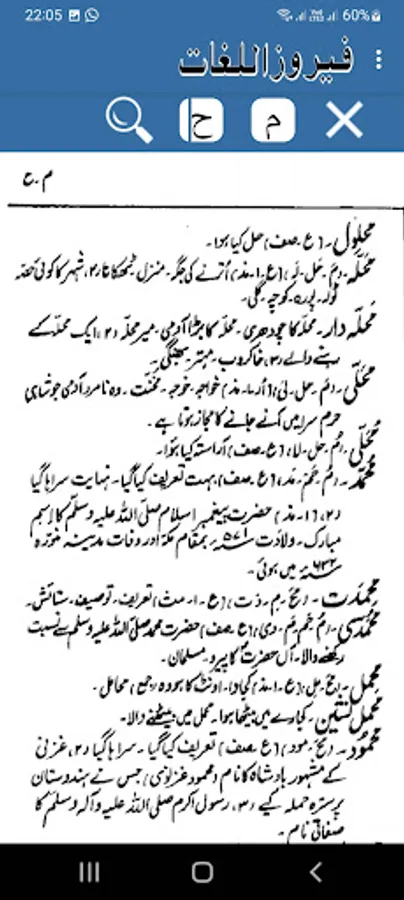 22:05 60%
فیروزاللغات
ح م
م۔ح
محلول۔ (ع۔صف) حل کیا ہوا۔
محلّہ۔ (مَ۔حَل۔لَہ) (ع۔ا۔مذ) اُترنے کی جگہ۔ منزل ٹھکانا (۲) شہر کا کوئی حصّہ
ٹولہ۔ پورہ۔ کوچہ۔ گلی۔
محلّہ دار۔ محلہ کا چودھری۔ محلہ کا بڑا آدمی۔ میر محلہ (۲) ایک محلہ کے
رہنے والے (۳) خاکروب۔ مہتر۔ بھنگی۔
محلّی۔ (مَ۔حل۔لی) (اُر۔ا۔مذ) خواجہ۔ خوجہ۔ مخنّث۔ وہ نامرد آدمی جو شاہی
حرم سرا میں آنے جانے کا مجاز ہوتا ہے۔
محلّٰی۔ (مُ۔حل۔لا) (ع۔صف) آراستہ کیا ہوا۔
محمّد۔ (مُ۔حَم۔مَد) (ع۔صف) بہت تعریف کیا گیا۔ نہایت سراہا گیا
(۲) (ا۔مذ) حضرت پیغمبر اسلام صلّی اللہ علیہ وسلّم کا اسم
مبارک۔ ولادت ۵۷۱ء بمقام مکّہ اور وفات مدینہ منورہ
۶۳۲ء میں ہوئی۔
محمدت۔ (مَح۔مِ۔دَت) (ع۔ا۔مث) تعریف۔ توصیف۔ ستائش۔
محمّدی۔ (مُ۔حَم۔مَ۔دی) (ع۔صف) حضرت محمد صلّی اللہ علیہ وسلم سے نسبت
رکھنے والا۔ آں حضرتؐ کا پیرو۔ مسلمان۔
محمل۔ (مَح۔مِل) (ع۔ا۔مذ) کجاوا۔ اونٹ کا ہودہ (جمع) محامل۔
محمل نشین۔ کجاوے میں بیٹھا ہوا۔ محمل میں بیٹھنے والا۔
محمود۔ (مَح۔مود) (ع۔صف) تعریف کیا گیا۔ سراہا گیا (۲) غزنی
کے مشہور بادشاہ کا نام (محمود غزنوی) جس نے ہندوستان
پر سترہ حملہ کیے (۳) رسول اکرم صلّی اللہ علیہ وآلہ وسلم کا
صفاتی نام۔